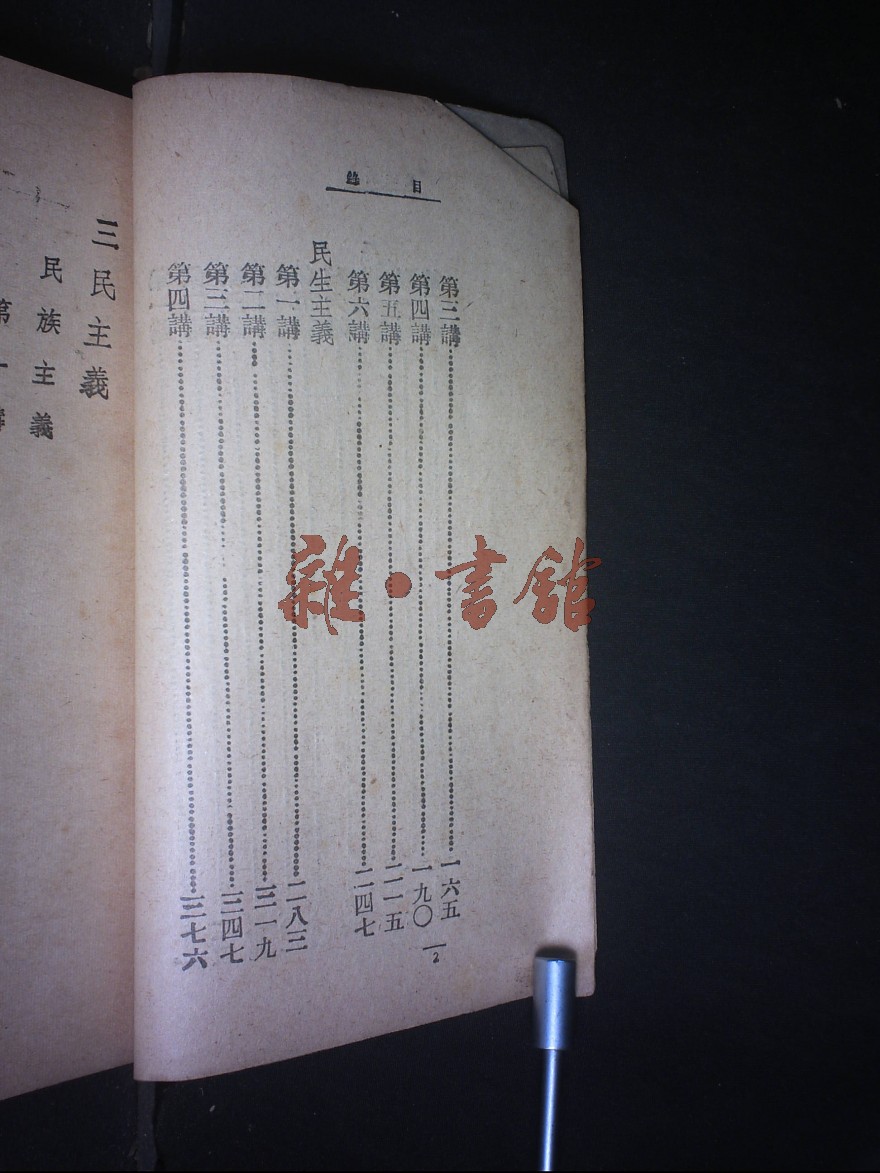 目錄
第三講……一六五
第四講……一九〇
第五講……二一五
第六講……二四七
民生主義
第一講……二八三
第二講……三一九
第三講……三四七
第四講……三七六
2
三民主義
民族主義
第一講
雜·書館